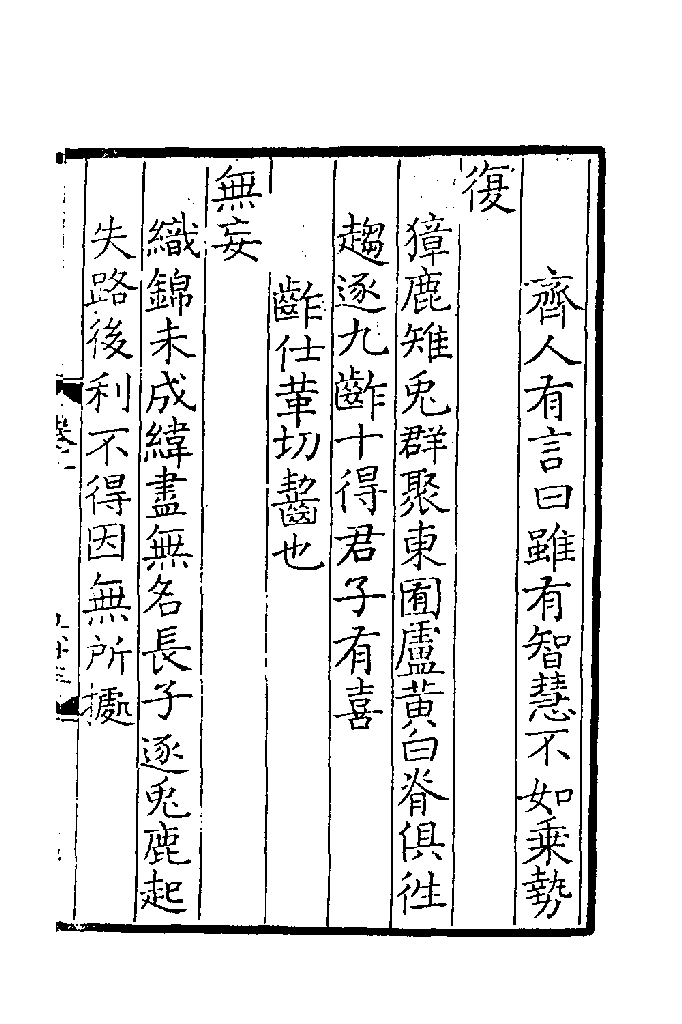 齊人有言曰雖有智慧不如乗勢
復
獐鹿雉兎群聚東囿盧黄白脊俱往
趨逐九齚十得君子有喜
齚仕革切齧也
無妄
織錦未成緯盡無名長子逐兎鹿起
失路後利不得因無所據
卷